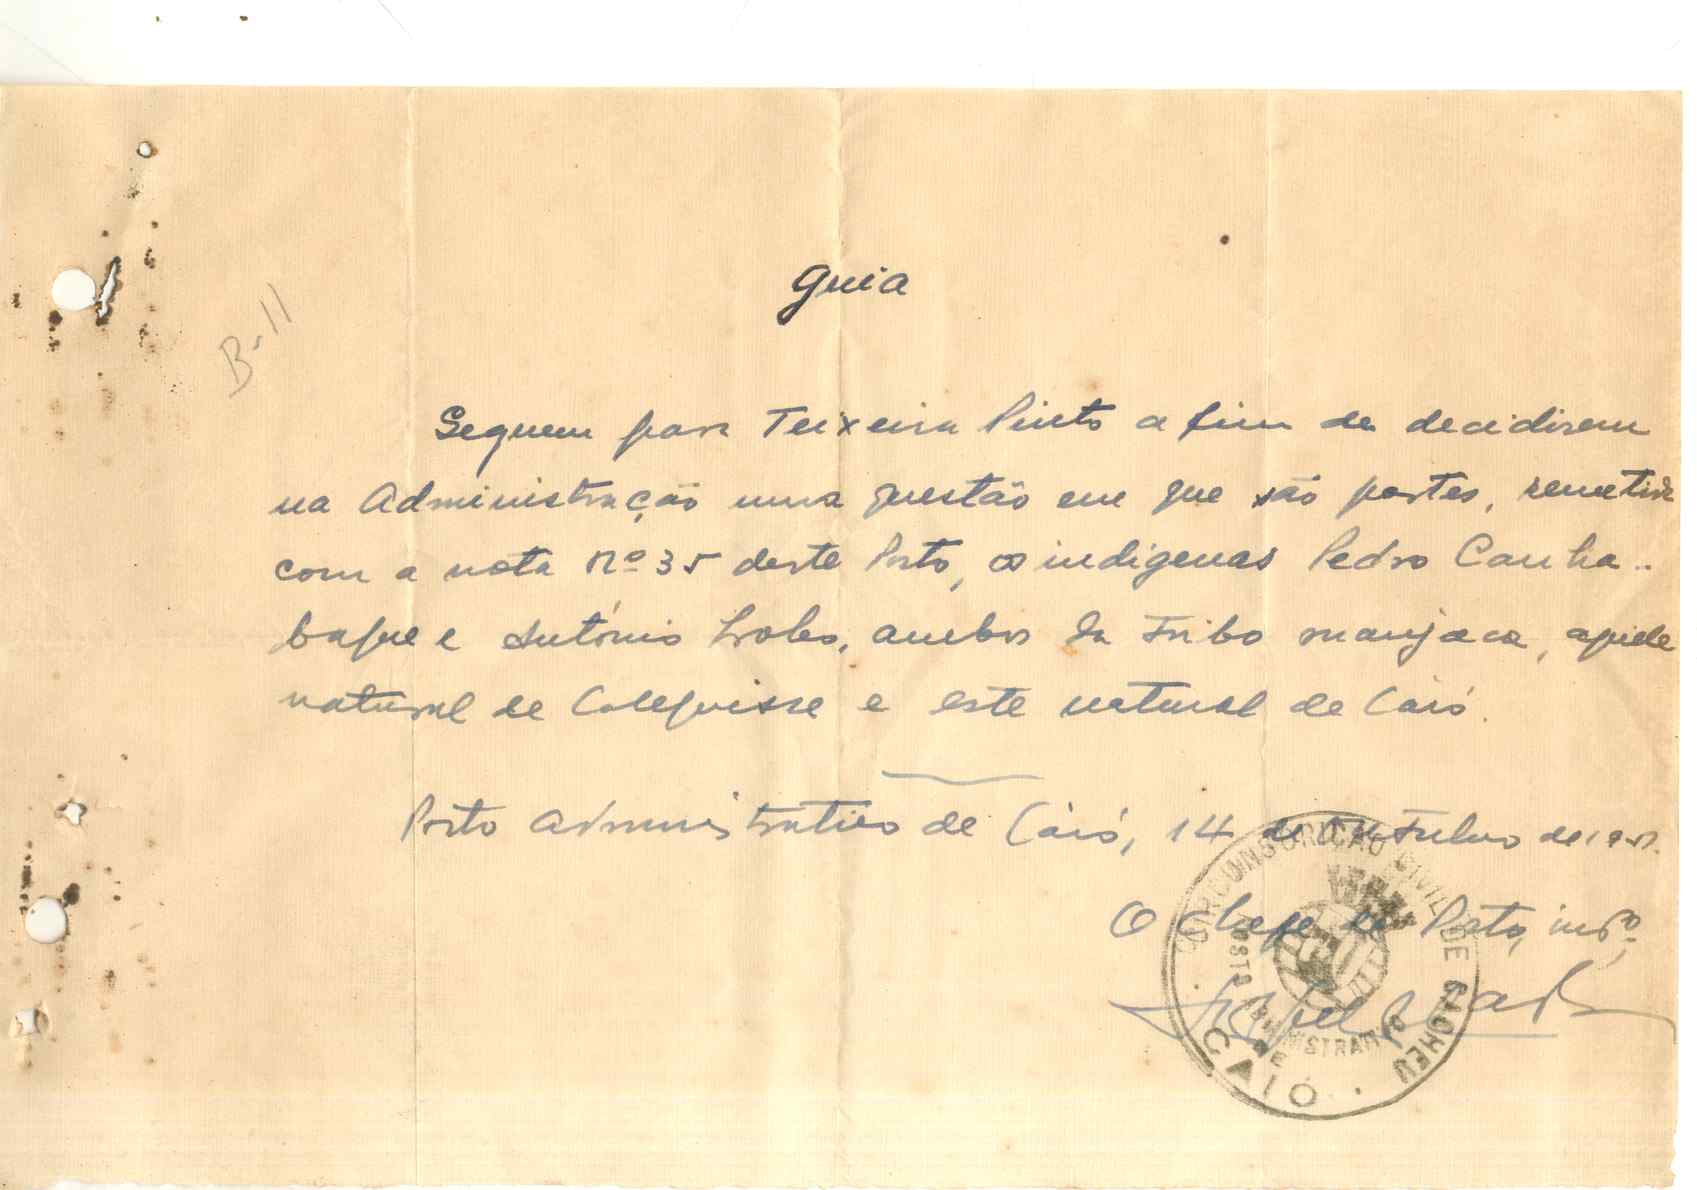 Guia
B-11
Seguem para Teixeira Pinto a fim de decidirem
na Administração uma questão em que são partes, remetida
com a nota Nº 35 deste Posto, os indigenas Pedro Canha-
baque e António, ambos da Tribo manjaca, aquele
natural de Calequisse e este natural de Caió.
Posto Administrativo de Caió, 14 de Julho de
O Chefe de Posto, intº,
CIRCUNSCRIÇÃO CIVIL DE CACHEU
POSTO ADMINISTRATIVO
DE
CAIÓ